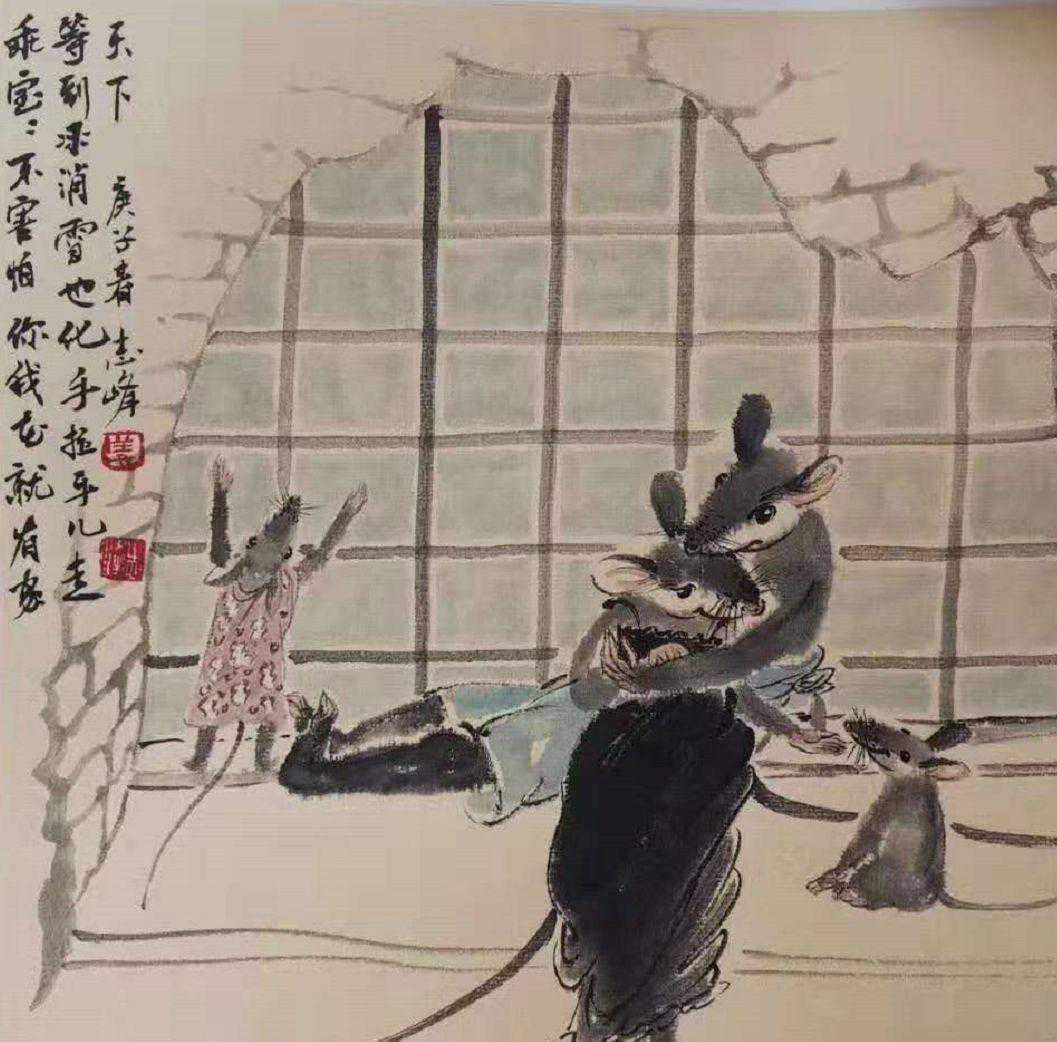 乖宝〻不害怕 你我在就有家
等到冰消雪也化 手拉手儿走
天下 庚子春 志峰